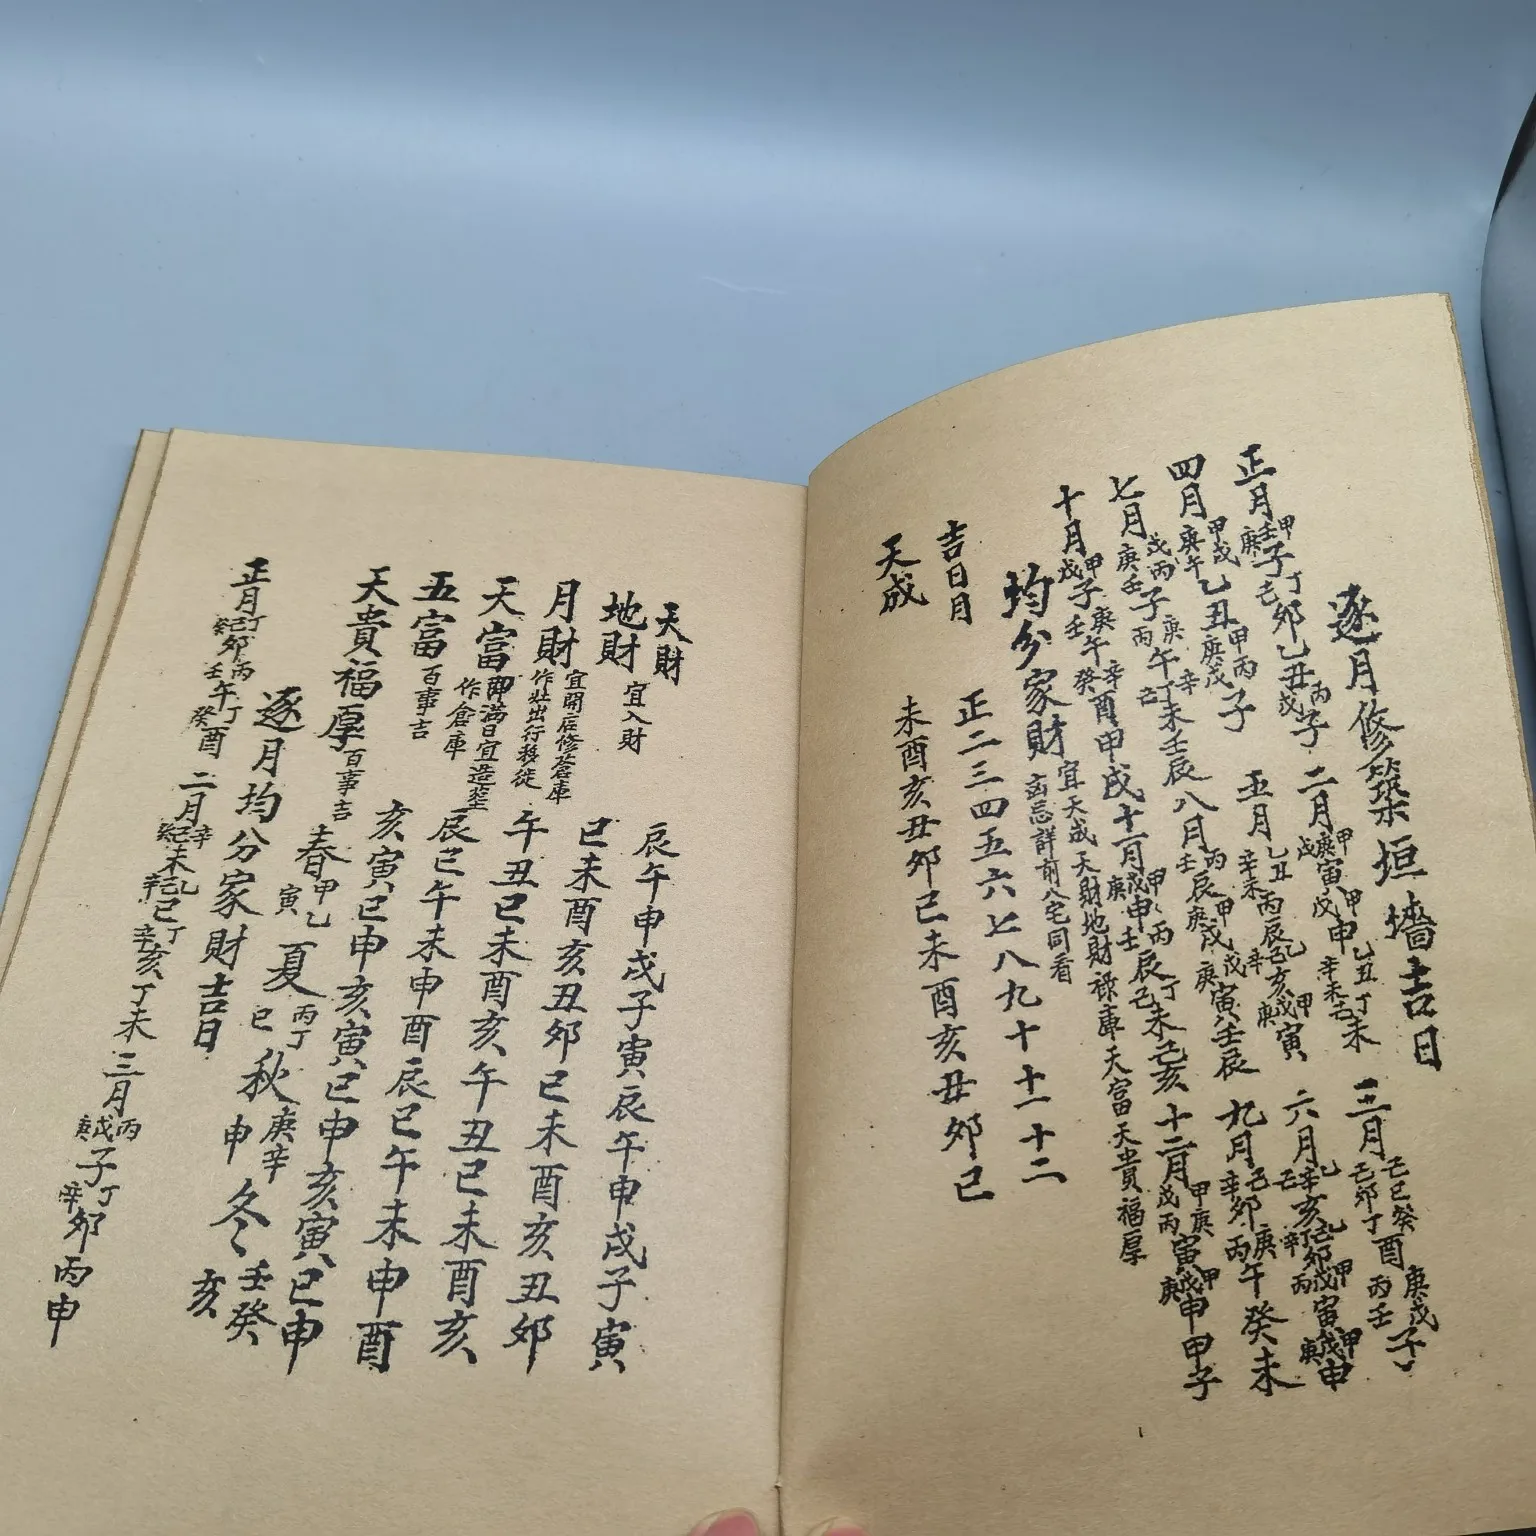 逐月修築垣墻吉日
正月甲壬庚子丁己卯乙丑丙戊子二月甲庚戊寅甲戊申乙丑辛未丁未己未三月
四月甲戌庚午乙丑甲丙庚戊子五月乙丑辛未丙辰乙己辛亥甲戊庚寅六月
七月戊丙庚壬子庚丙午辛丁未壬辰八月丙壬辰甲庚戌戊庚寅壬辰九月己辛卯庚丙午癸未
十月甲戊子庚壬午辛癸酉甲戌十一月甲戊庚申丙壬辰丁己未乙亥十二月甲庚戊丙寅甲戊庚申甲子
均分家財宜天成天財地財祿庫天富天貴福厚
凶忌詳前八宅同看
吉日月 正二三四五六七八九十十一十二
天成 未酉亥丑卯巳未酉亥丑卯巳
天財 辰午申戌子寅辰午申戌子寅
地財宜入財 巳未酉亥丑卯巳未酉亥丑卯
月財宜開店修倉庫作灶出行移徙 午丑巳未酉亥午丑巳未酉亥
天富即滿日宜造塟作倉庫 辰巳午未申酉辰巳午未申酉
五富百事吉 亥寅巳申亥寅巳申亥寅巳申
天貴福厚百事吉 春甲乙寅夏丙丁巳秋庚辛申冬壬癸亥
逐月均分家財吉日
正月丁己癸卯丙壬午丁癸酉二月辛己癸未乙己辛巳丁辛亥丁未三月丙戊庚子丁辛卯丙申